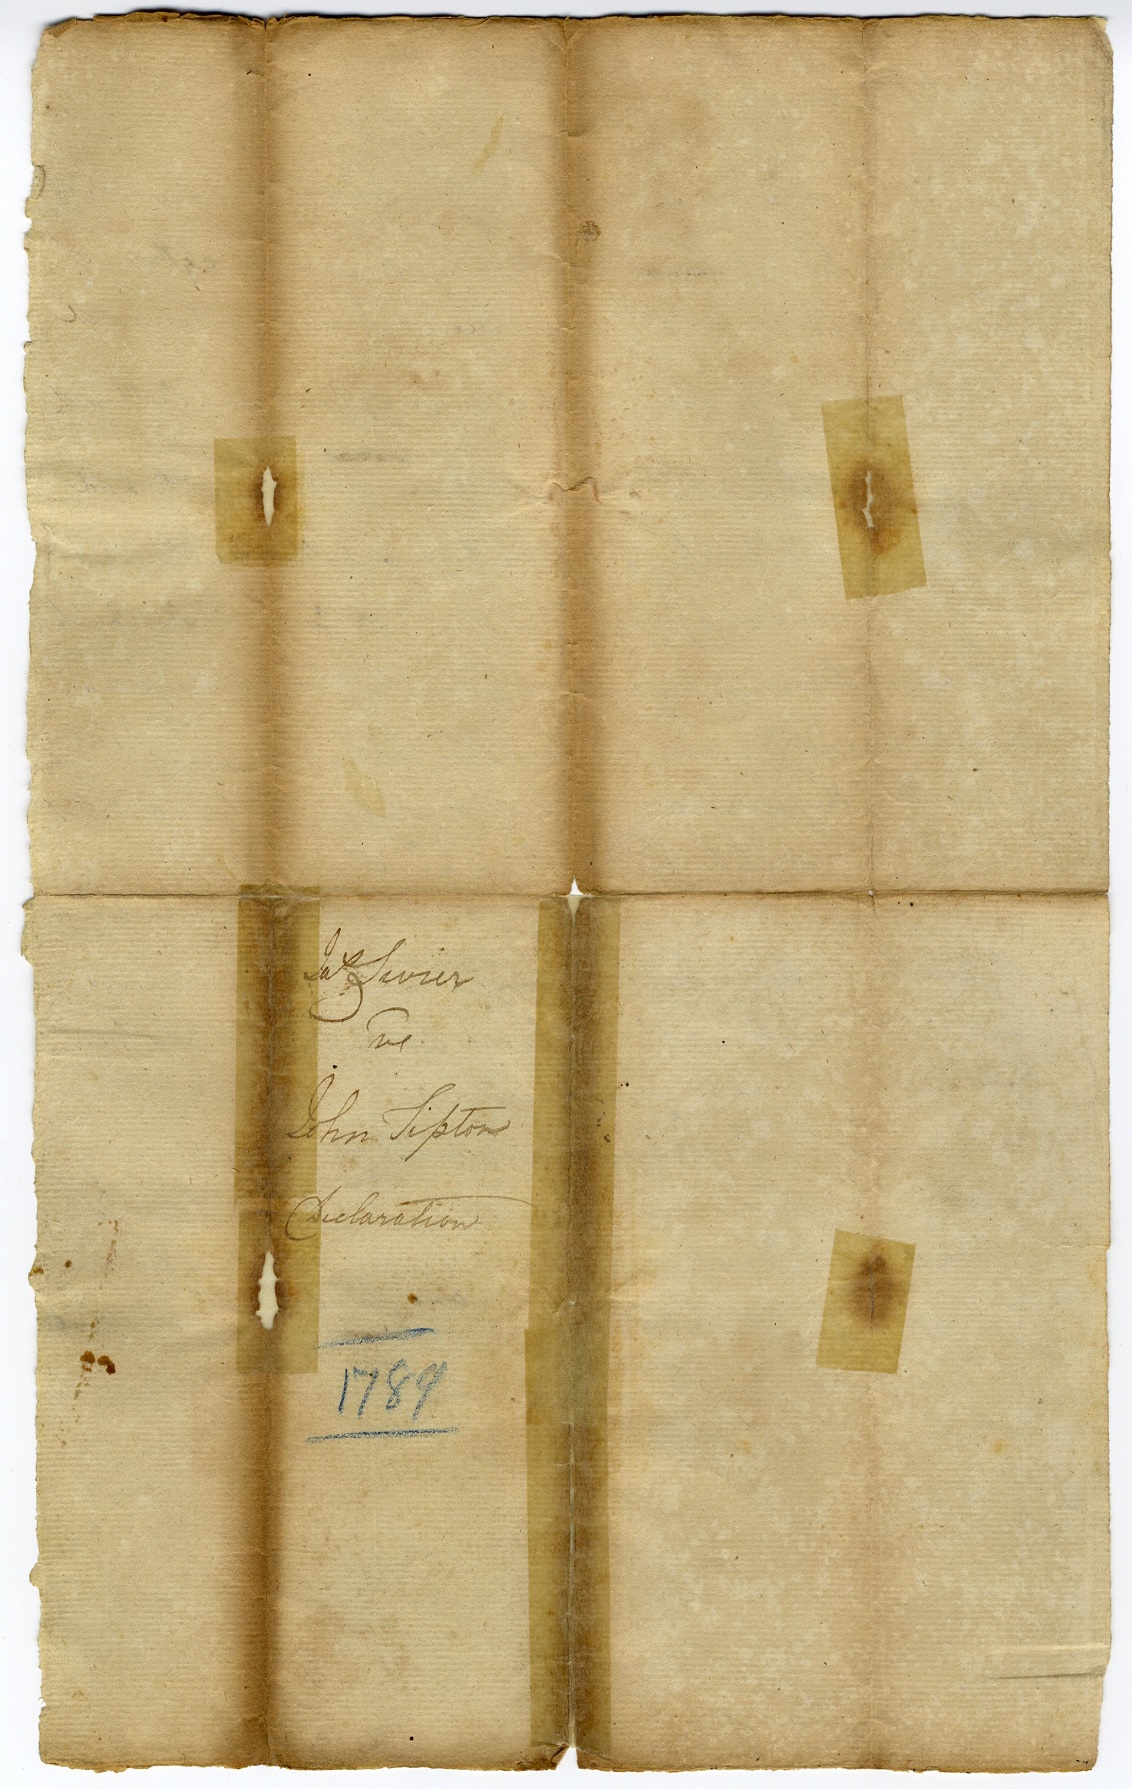 Jas Sevier
vs
John Tipton
Declaration
1789